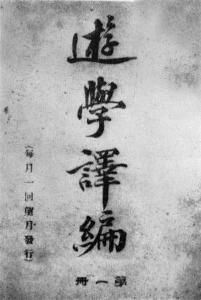 遊學譯編
(每月一回望月發行)
第一冊